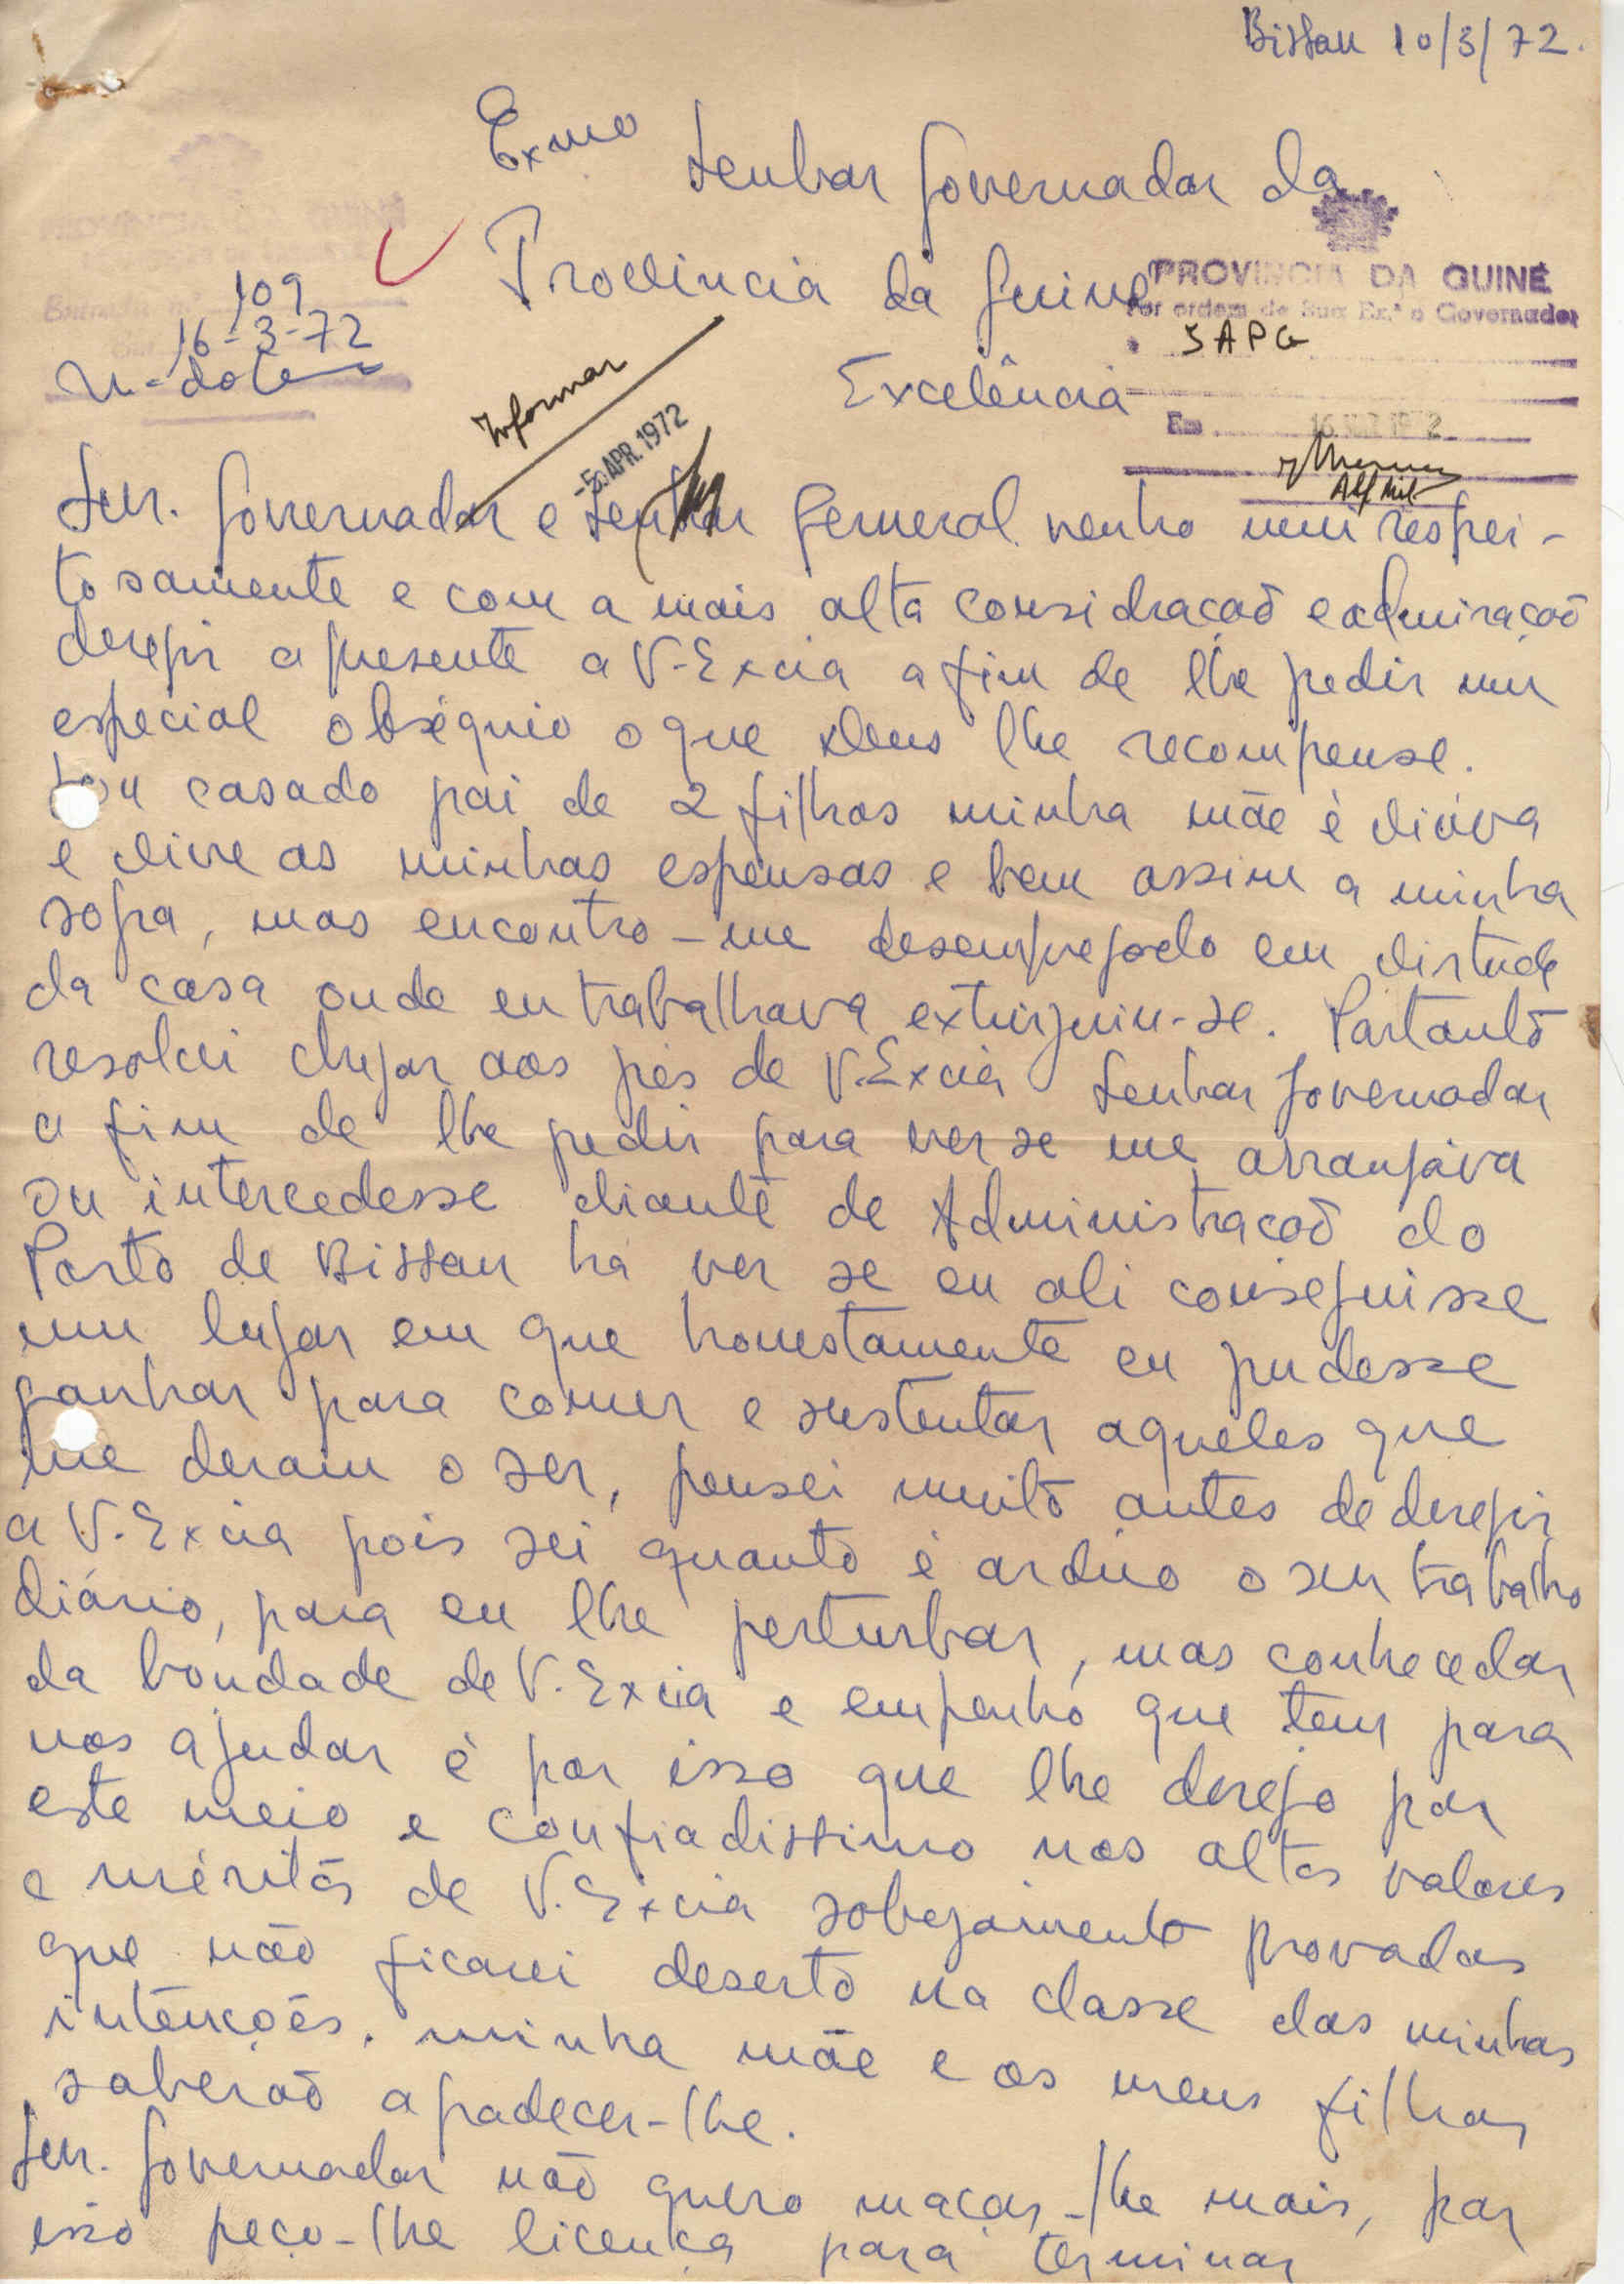 Bissau 10/3/72.
Exmo Senhor Governador da
Provincia da Guiné
PROVINCIA DA GUINÉ
Por ordem de Sua Ex.ª o Governador
SAPG
109
16-3-72
Informar
Excelência
Em 16 1972
-5. APR. 1972
Alf Mil
Snr. Governador e Senhor General venho mui respei-
tosamente e com a mais alta considraçaõ e admiraçaõ
deregir a presente a V. Excia a fim de lhe pedir um
especial obséquio o que Deus lhe recompense.
Sou casado pai de 2 filhos minha mãe é viúva
e vive as minhas espensas e bem assim a minha
sogra, mas encontro-me desempregado em virtude
da casa onde eu trabalhava extinguiu-se. Partantõ
resolvi chegar aos pés de V. Excia Senhor Governador
a fim de lhe pedir para ver se me arranjava
ou intercedesse diante de Administraçaõ do
Porto de Bissau há ver se eu ali conseguisse
um lugar em que honestamente eu pudesse
ganhar para comer e sustentar aqueles que
me deram o ser, pensei muito antes de deregir
a V. Excia pois sei quanto é arduo o seu trabalho
diário, para eu lhe perturbar, mas conhecedor
da bondade de V. Excia e empenho que tem para
nos ajudar é por isso que lhe derejo por
este meio e confiadissimo nos altos valores
e méritos de V. Excia sobejamente provadas
que não ficarei deserto na classe das minhas
intençoẽs. minha mãe e os meus filhos
saberaõ agradecer-lhe.
Snr. Governador naõ quero maçar-lhe mais, por
isso peço-lhe licença para terminar